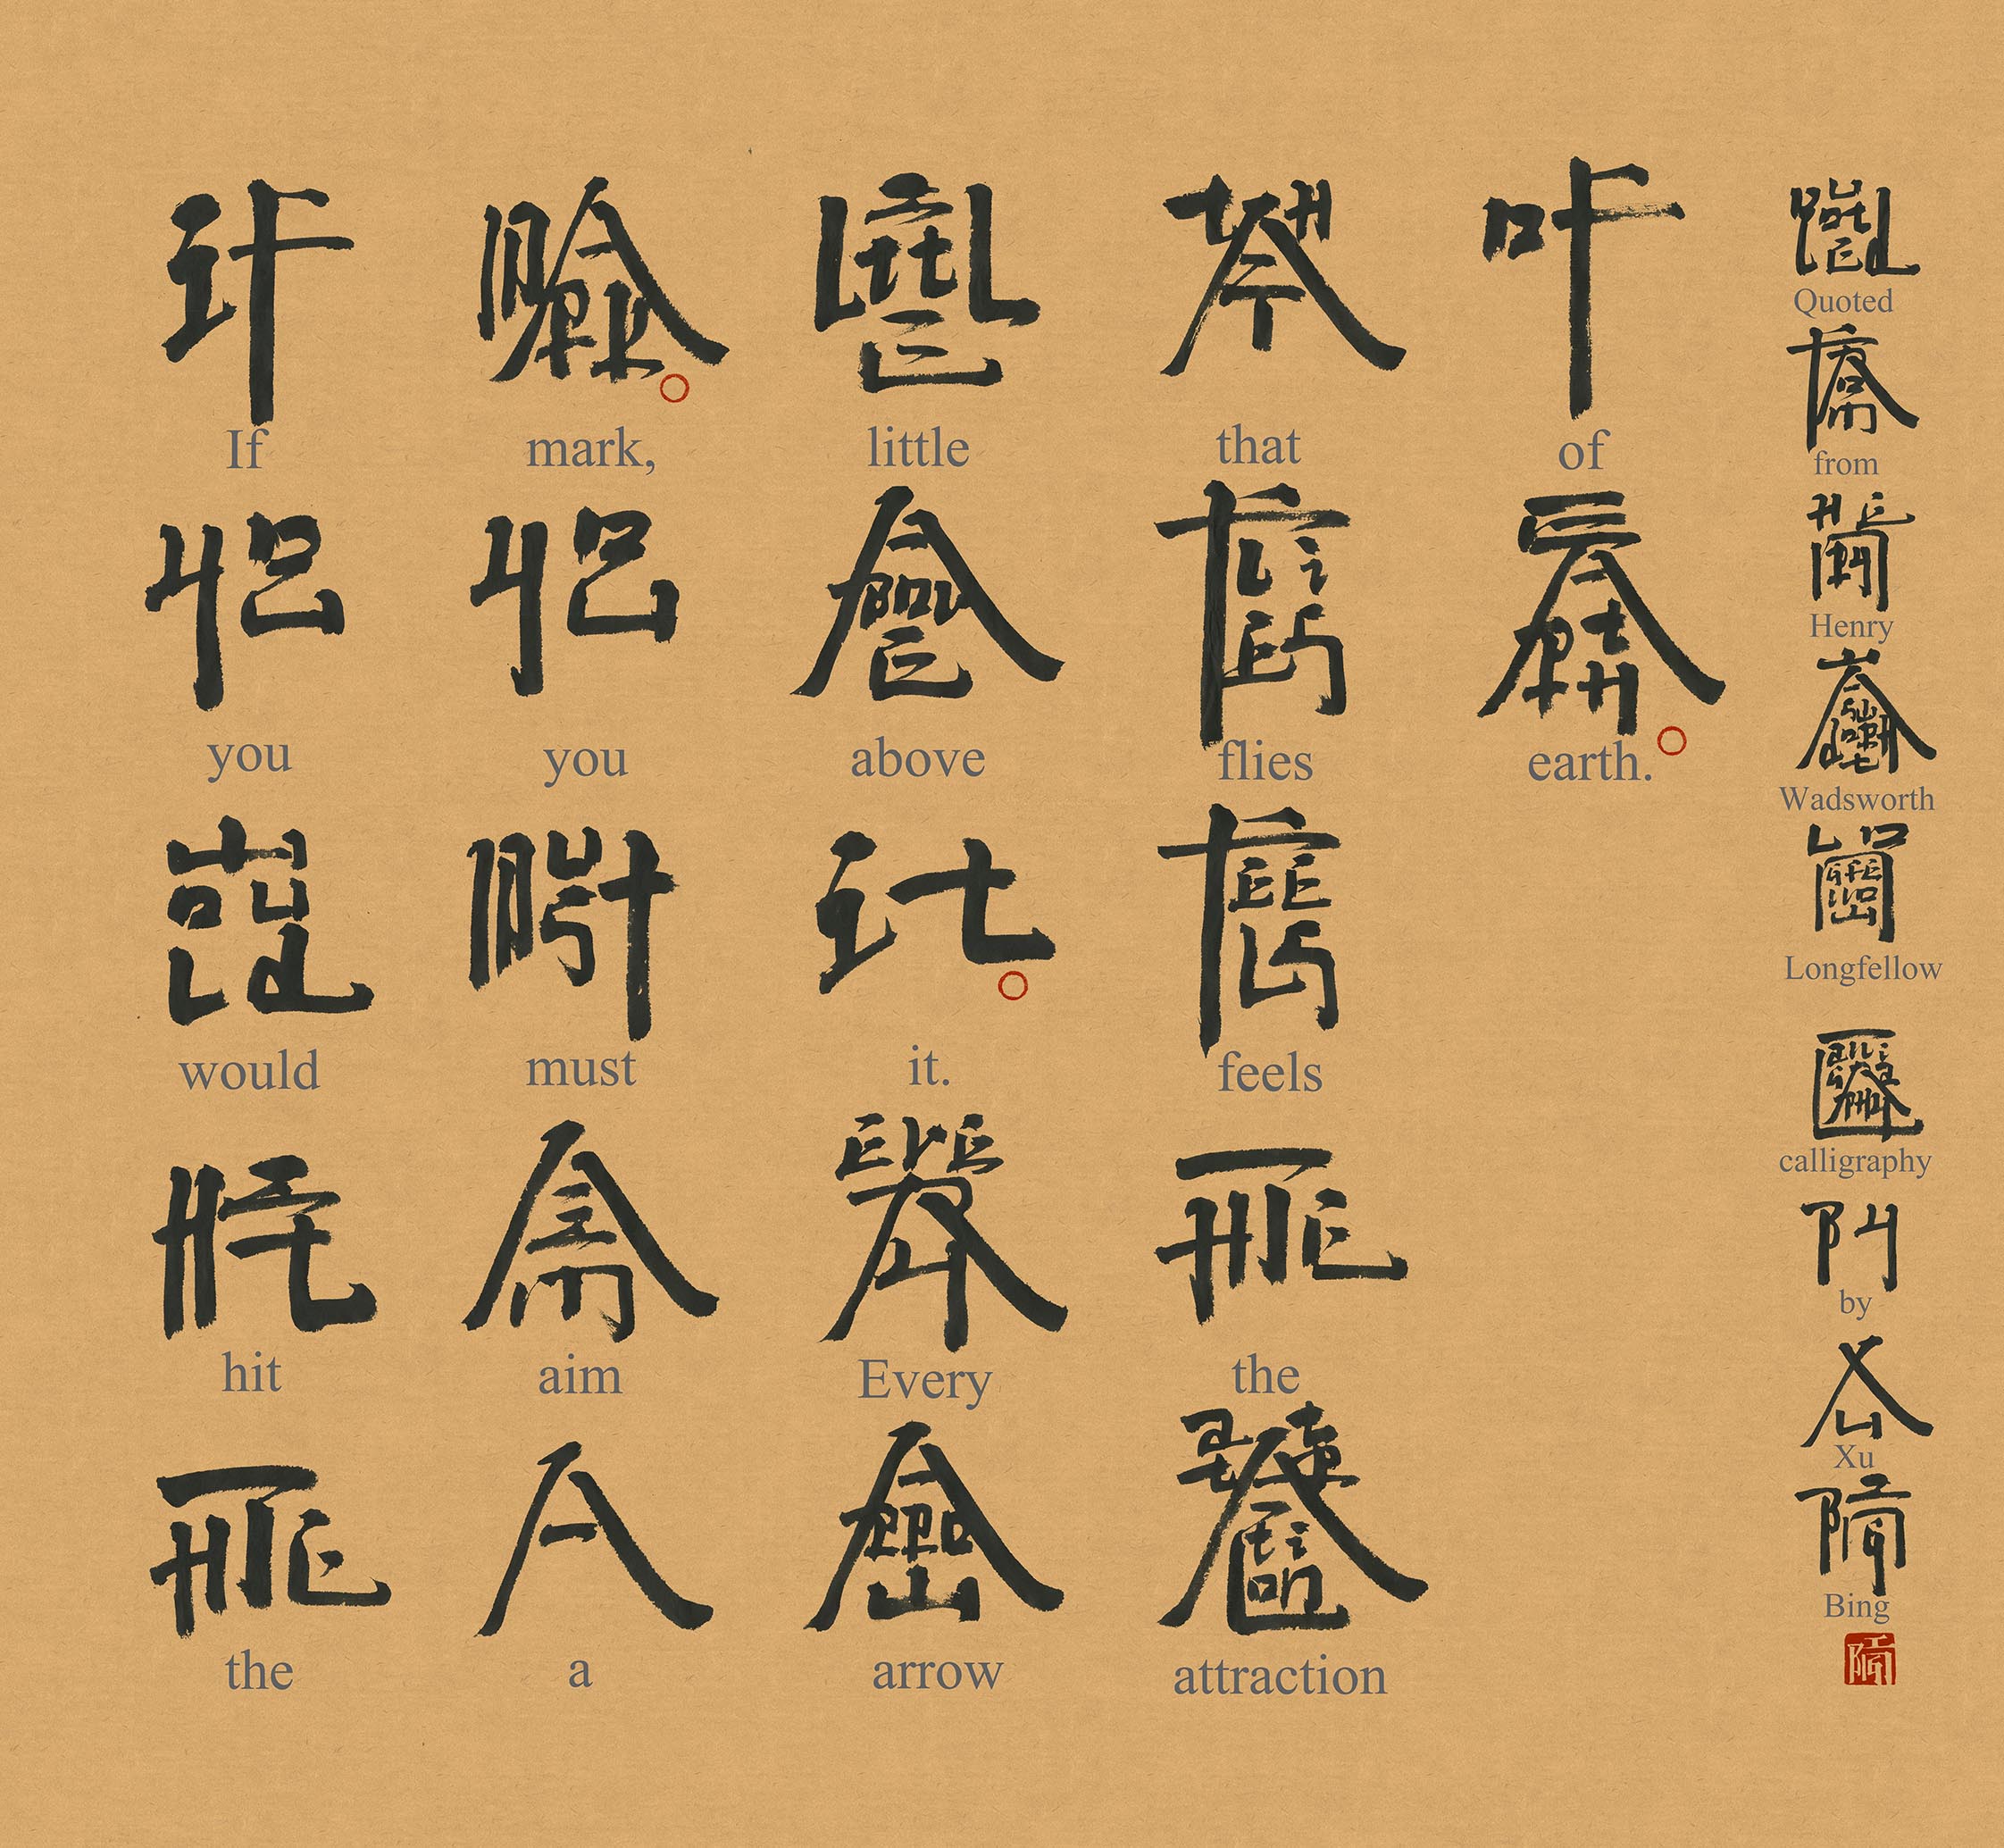 If you would hit the
mark, you must aim a
little above it. Every arrow
that flies feels the attraction
of earth.
Quoted from Henry Wadsworth Longfellow calligraphy by Xu Bing